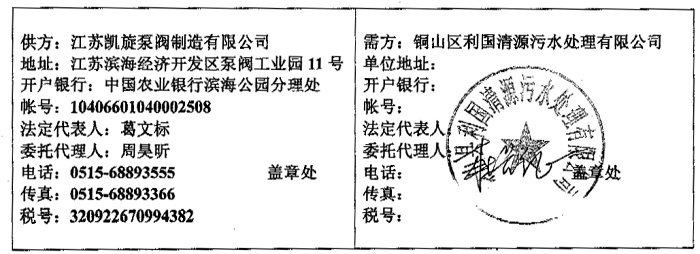 供方：江苏凯旋泵阀制造有限公司
地址：江苏滨海经济开发区泵阀工业园 11 号
开户银行：中国农业银行滨海公园分理处
帐号：10406601040002508
法定代表人：葛文标
委托代理人：周昊昕
电话：0515-68893555 盖章处
传真：0515-68893366
税号：320922670994382
需方：铜山区利国清源污水处理有限公司
单位地址：
开户银行：
帐号：
法定代表人：
委托代理人：
电话： 盖章处
传真：
税号：
县利国清源污水处理有限公司